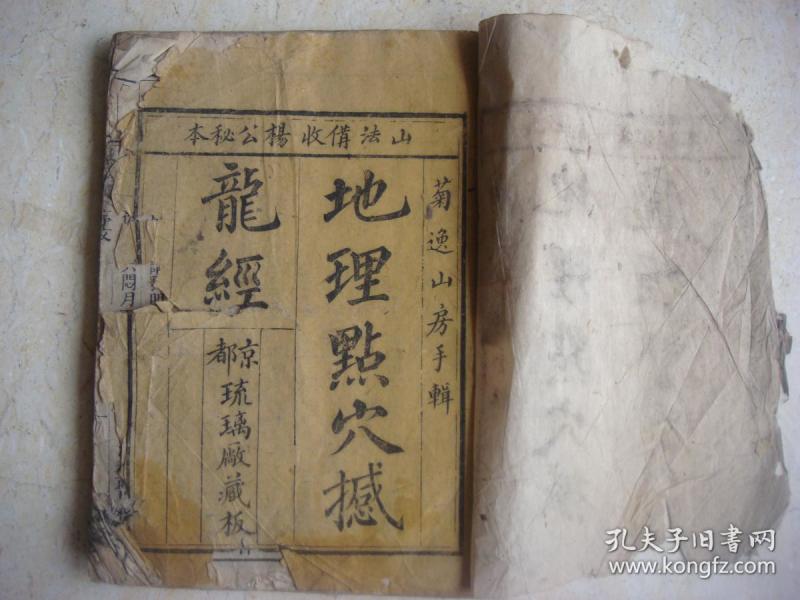 山法備收楊公秘本
菊逸山房手輯
地理點穴撼
龍經
京都
琉璃厰藏板
孔夫子旧书网
www.kongfz.com